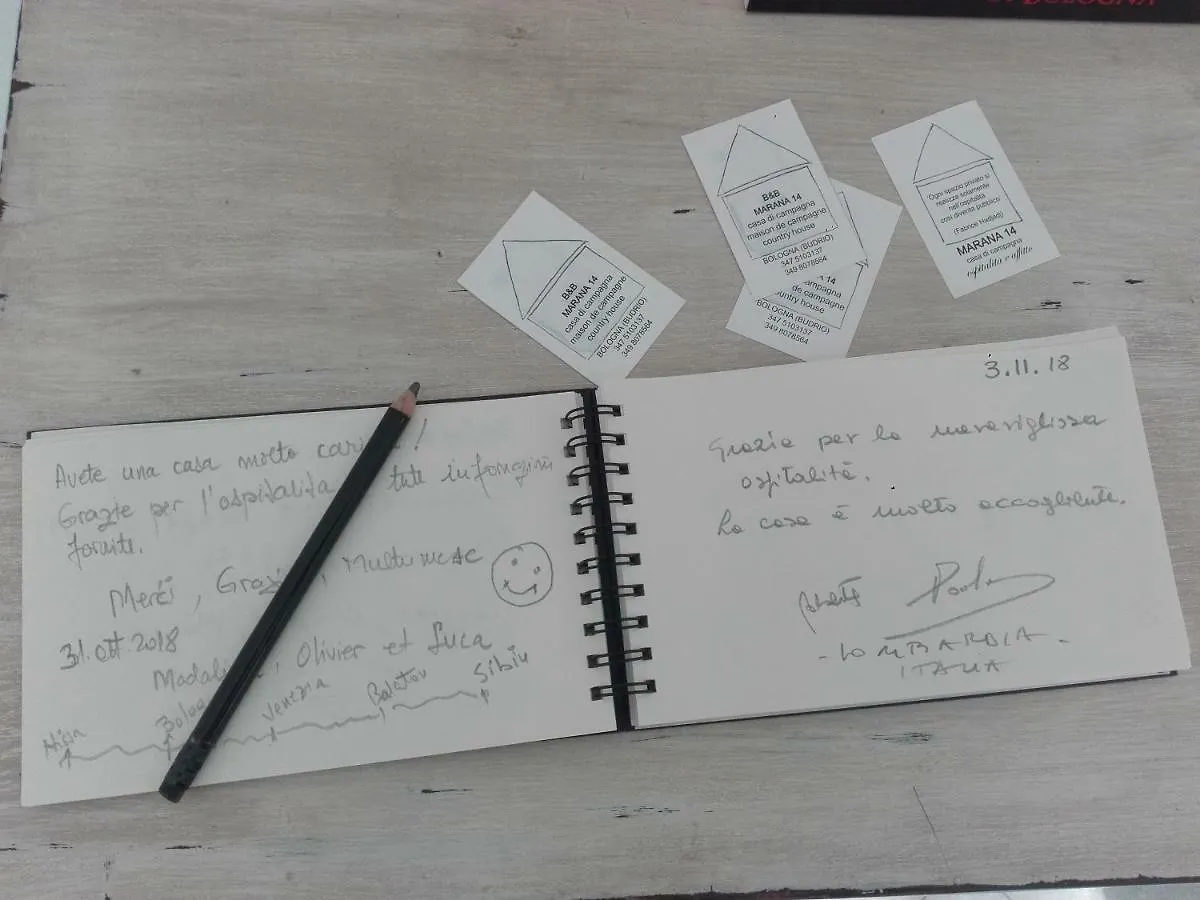 DI BOLOGNA
B&B
MARANA 14
casa di campagna
maison de campagne
country house
BOLOGNA (BUDRIO)
347 5103137
349 8078564
B&B
MARANA 14
casa di campagna
maison de campagne
country house
BOLOGNA (BUDRIO)
347 5103137
349 8078564
14
de campagne
country house
BOLOGNA (BUDRIO)
347 5103137
349 8078564
Ogni spazio privato si
realizza solamente
nell'ospitalità
così diventa pubblico
(Fabrice Hadjadj)
MARANA 14
casa di campagna
ospitalità e affitto
Avete una casa molto !
Grazie per l'ospitalita tute
fornite.
Merci, , Multumesc
31.ott.2018
Olivier et Luca
Venezia Balaton Sibiu
3.11.18
Grazie per la meravigliosa
ospitalità.
La casa è molto accogliente.
Paola
- LOMBARDIA -
ITALIA